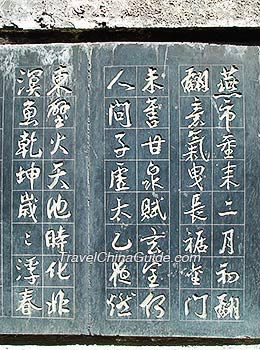 燕市重來二月初翩
翩意氣曳長裾金門
未售甘泉賦玄室何
人問子虛太乙夜燃
東壁火天池時化北
溟魚乾坤歲々浮春
TravelChinaGuide.com